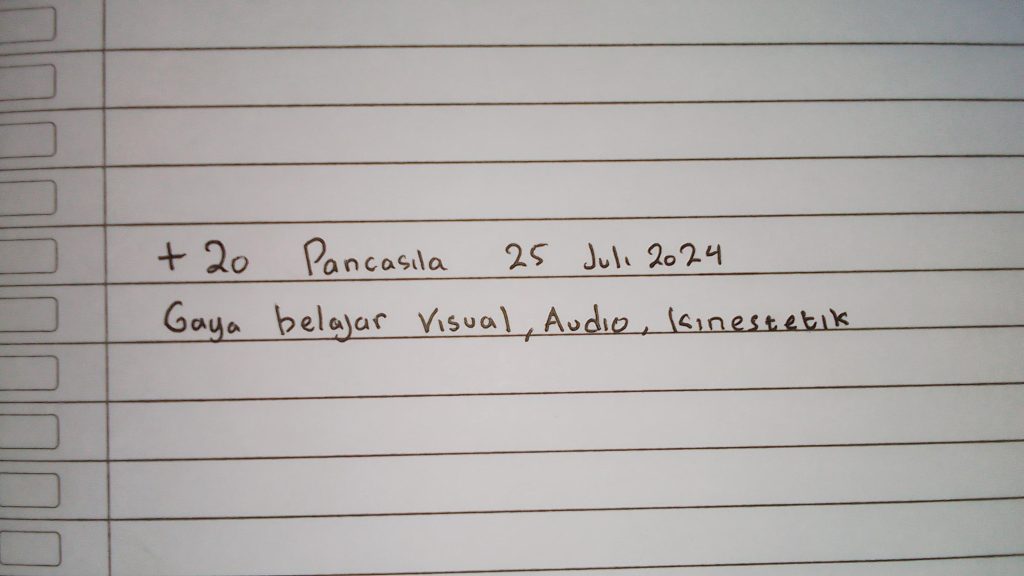 + 20 Pancasila 25 Juli 2024
Gaya belajar Visual, Audio, Kinestetik